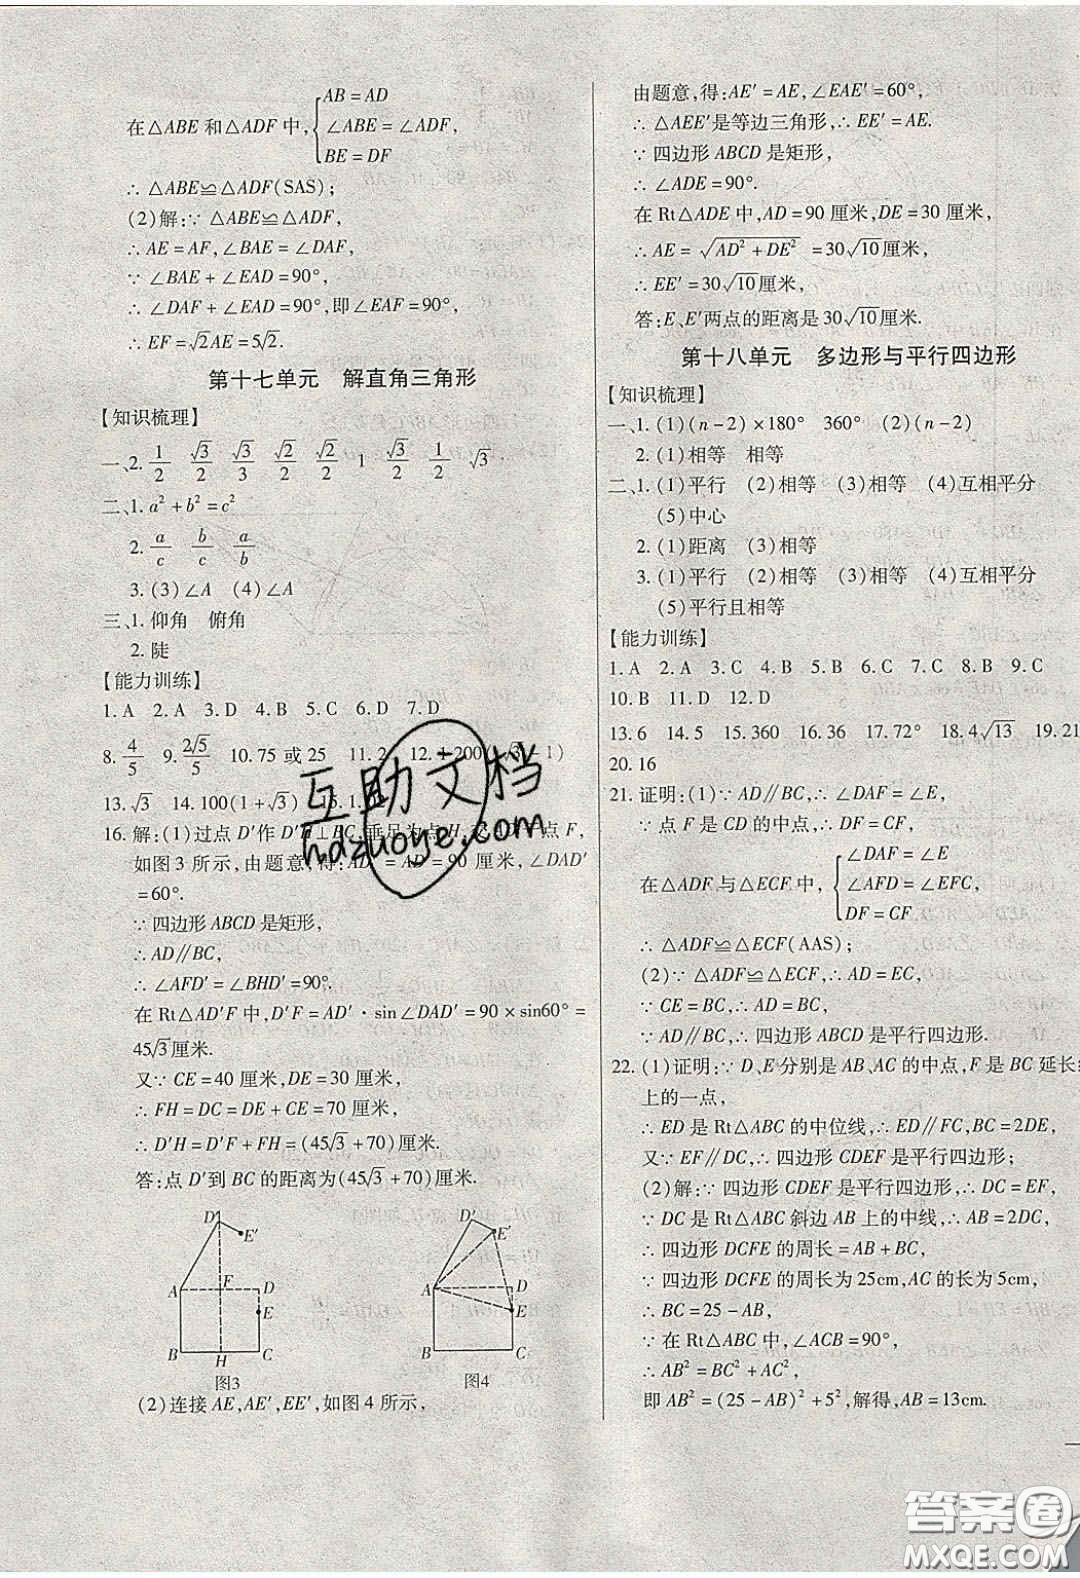 在△ABE 和△ADF 中,{AB=AD
∠ABE=∠ADF,
BE=DF
∴ △ABE≌△ADF(SAS);
(2)解:∵ △ABE≌△ADF,
∴ AE=AF,∠BAE=∠DAF,
∵ ∠BAE+∠EAD=90°,
∴ ∠DAF+∠EAD=90°,即∠EAF=90°,
∴ EF=√2AE=5√2.
第十七单元 解直角三角形
【知识梳理】
一、2. 1/2 √3/2 √3/3 √2/2 √2/2 1 √3/2 1/2 √3
二、1. a²+b²=c²
2. a/c b/c a/b
3. (3)∠A (4)∠A
三、1. 仰角 俯角
2. 陡
【能力训练】
1. A 2. A 3. D 4. B 5. C 6. D 7. D
8. 4/5 9. 2√5/5 10. 75 或 25 11. 2 12. 1 200(√3-1)
13. √3 14. 100(1+√3) 15. 1.
16. 解:(1)过点 D′作 D′H⊥BC,垂足为点 H,交 AD 于点 F,
如图 3 所示,由题意,得:AD′=AD=90 厘米,∠DAD′
=60°.
∵ 四边形 ABCD 是矩形,
∴ AD∥BC,
∴ ∠AFD′=∠BHD′=90°.
在 Rt△AD′F 中,D′F=AD′·sin∠DAD′=90×sin60°=
45√3厘米.
又∵ CE=40 厘米,DE=30 厘米,
∴ FH=DC=DE+CE=70 厘米,
∴ D′H=D′F+FH=(45√3+70)厘米.
答:点 D′到 BC 的距离为(45√3+70)厘米.
D′ E′ A F D E B H C
图3
E′ A D E B C
图4
(2)连接 AE,AE′,EE′,如图 4 所示,
由题意,得:AE′=AE,∠EAE′=60°,
∴ △AEE′是等边三角形,∴ EE′=AE.
∵ 四边形 ABCD 是矩形,
∴ ∠ADE=90°.
在 Rt△ADE 中,AD=90 厘米,DE=30 厘米,
∴ AE=√(AD²+DE²)=30√10厘米,
∴ EE′=30√10厘米.
答:E、E′两点的距离是 30√10厘米.
第十八单元 多边形与平行四边形
【知识梳理】
一、1. (1)(n-2)×180° 360° (2)(n-2)
2. (1)相等 相等
二、1. (1)平行 (2)相等 (3)相等 (4)互相平分
(5)中心
2. (1)距离 (3)相等
3. (1)平行 (2)相等 (3)相等 (4)互相平分
(5)平行且相等
【能力训练】
1. A 2. A 3. C 4. B 5. B 6. C 7. C 8. B 9. C
10. B 11. D 12. D
13. 6 14. 5 15. 360 16. 36 17. 72° 18. 4√13 19. 21
20. 16
21. 证明:(1)∵ AD∥BC,∴ ∠DAF=∠E,
∵ 点 F 是 CD 的中点,∴ DF=CF,
在△ADF 与△ECF 中,{∠DAF=∠E
∠AFD=∠EFC,
DF=CF
∴ △ADF≌△ECF(AAS);
(2)∵ △ADF≌△ECF,∴ AD=EC,
∵ CE=BC,∴ AD=BC,
∵ AD∥BC,∴ 四边形 ABCD 是平行四边形.
22. (1)证明:∵ D、E 分别是 AB、AC 的中点,F 是 BC 延长
上的一点,
∴ ED 是 Rt△ABC 的中位线,∴ ED∥FC,BC=2DE,
又∵ EF∥DC,∴ 四边形 CDEF 是平行四边形;
(2)解:∵ 四边形 CDEF 是平行四边形,∴ DC=EF,
∵ DC 是 Rt△ABC 斜边 AB 上的中线,∴ AB=2DC,
∴ 四边形 DCFE 的周长=AB+BC,
∵ 四边形 DCFE 的周长为 25cm,AC 的长为 5cm,
∴ BC=25-AB,
∵ 在 Rt△ABC 中,∠ACB=90°,
∴ AB²=BC²+AC²,
即 AB²=(25-AB)²+5²,解得,AB=13cm.
互助文档
hdzuoye.com
答案圈
MXQE.COM